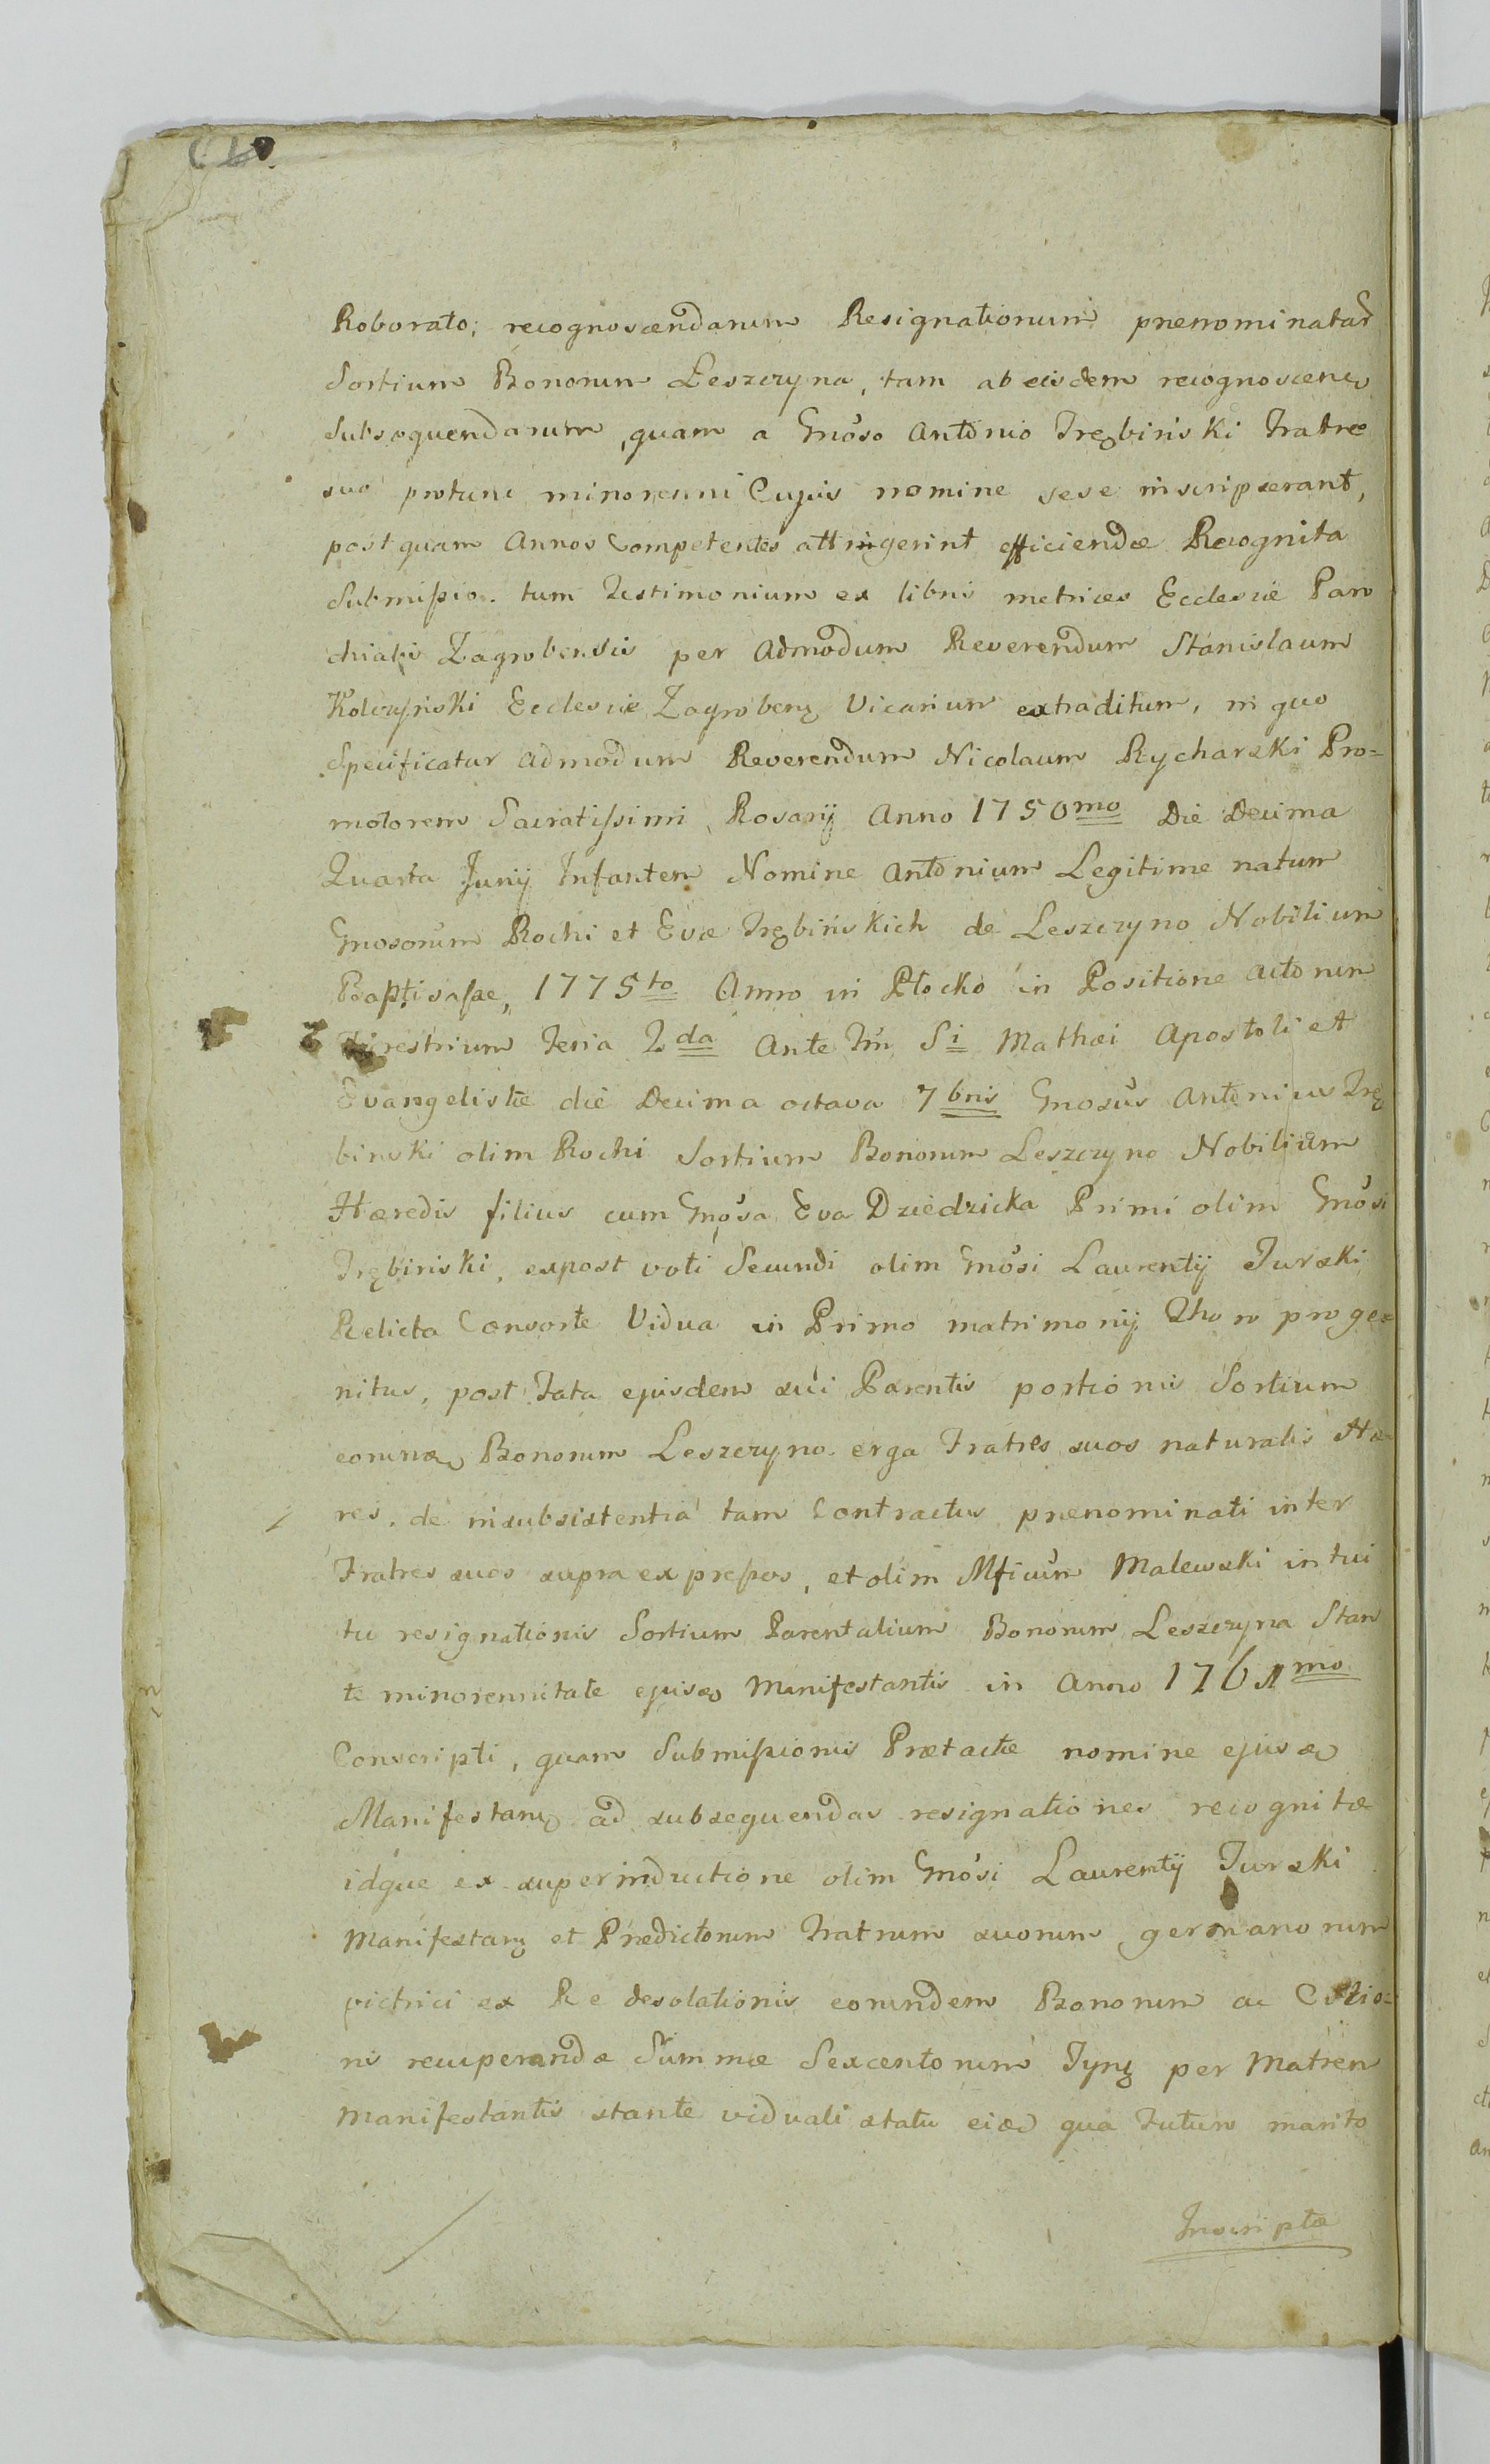 Roborato; recognoscendarum Resignationum prenominatar
Sortium Bonorum Leszczyna, tam ab eisdem recognoscen
subsequendarum, quam a Gnoso Antonio Trębiński Fratre
suo protunc minorenni Cujus nomine sese inscripserant,
postquam Annos Competentes attingerint efficiendæ Recognita
Submissio. tum Testimonium ex libris metrices Ecclesiæ Paro
chialis Zagrobensis per Admodum Reverendum Stanislaum
Kolczyński Ecclesiæ Zagroben Vicarium extraditum, in quo
Specificatur Admodum Reverendum Nicolaum Rycharski Pro=
motorem Sacratissimi Rosarij Anno 1750mo Die Decima
Quarta Junij Infantem Nomine Antonium Legitime natum
Gnosorum Rochi et Evæ Trębińskich de Leszczyno Nobilium
Baptisasse, 1775to Anno in Płocko in Positione Actorum
Terrestrium Feria 2da Ante Fm Si Mathæi Apostoli et
Evangelistæ die Decima octava 7bris Gnosus Antonius Trę
binski olim Rochi Sortium Bonorum Leszczyno Nobilium
Hæredis filius cum Gnosa Eva Dziedzicka Primi olim Gnosi
Trębiński, expost voti Secundi olim Gnosi Laurentij Turski
Relicta Consorte Vidua in Primo matrimonij Thoro proge=
nitus, post Fata ejusdem sui Parentis portionis Sortium
eorumd Bonorum Leszczyno erga Fratres suos naturalis Hæ
res. de insubsistentia tam Contractus prenominati inter
Fratres suos supra expressos, et olim Mficum Malewski intui
tu resignationis Sortium Parentalium Bonorum Leszczyna Stan
te minorennitate ejusd Manifestantis in Anno 1761mo
Conscripti, quam Submissionis Prætactæ nomine ejusd
Manifestan ad subsequendas resignationes recognitæ
idque ex superinductione olim Gnosi Laurentij Turski
Manifestan et Prædictorum Fratrum suorum germanorum
victrici ex Re desolationis eorundem Bonorum ac
ni recuperandæ Summæ Sexcentorum Tyn per Matrem
Manifestantis stante viduali statu eid qua Futuro marito
Inscriptæ